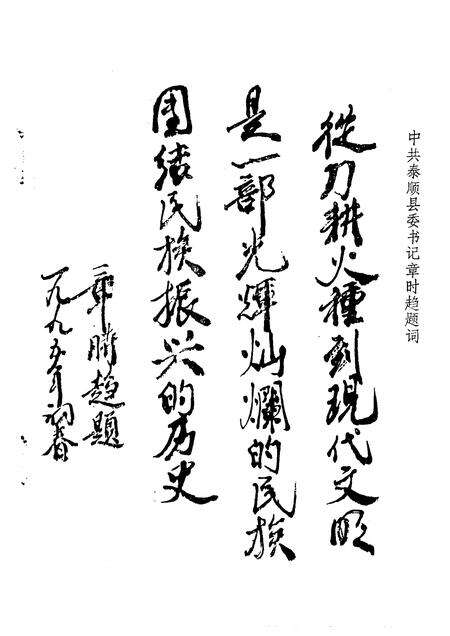 中共泰顺县委书记章时趋题词
從刀耕火種到現代文明
是一部光輝灿爛的民族
团结民族振兴的历史
章時趋題
一九九五年初春